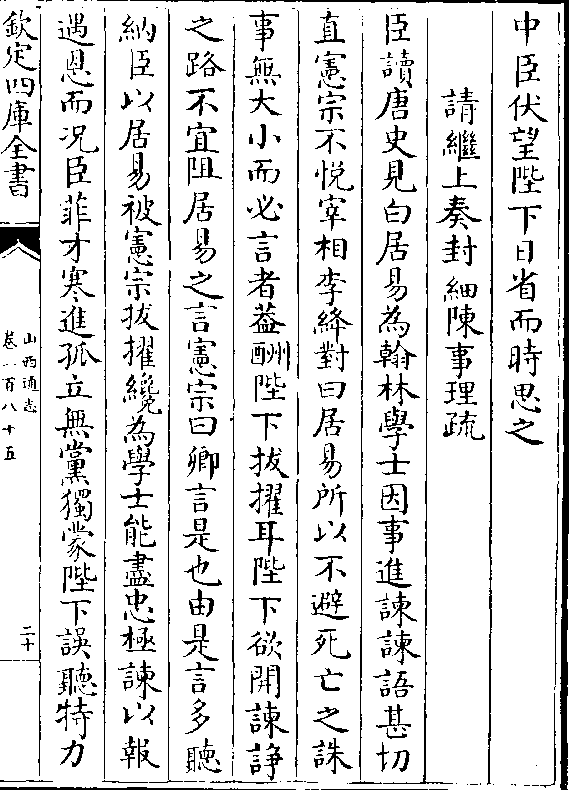 中臣伏望陛下日省而時思之
請繼上奏封細陳事理疏
臣讀唐史見白居易為翰林學士因事進諫諫語甚切
直憲宗不悦宰相李絳對曰居易所以不避死亡之誅
事無大小而必言者葢酬陛下拔擢耳陛下欲開諫諍
之路不宜阻居易之言憲宗曰卿言是也由是言多聽
納臣以居易被憲宗拔擢纔為學士能盡忠極諫以報
遇恩而况臣菲才寒進孤立無黨獨蒙陛下誤聽特力
欽定四庫全書
山西通志
卷一百八十五
二十